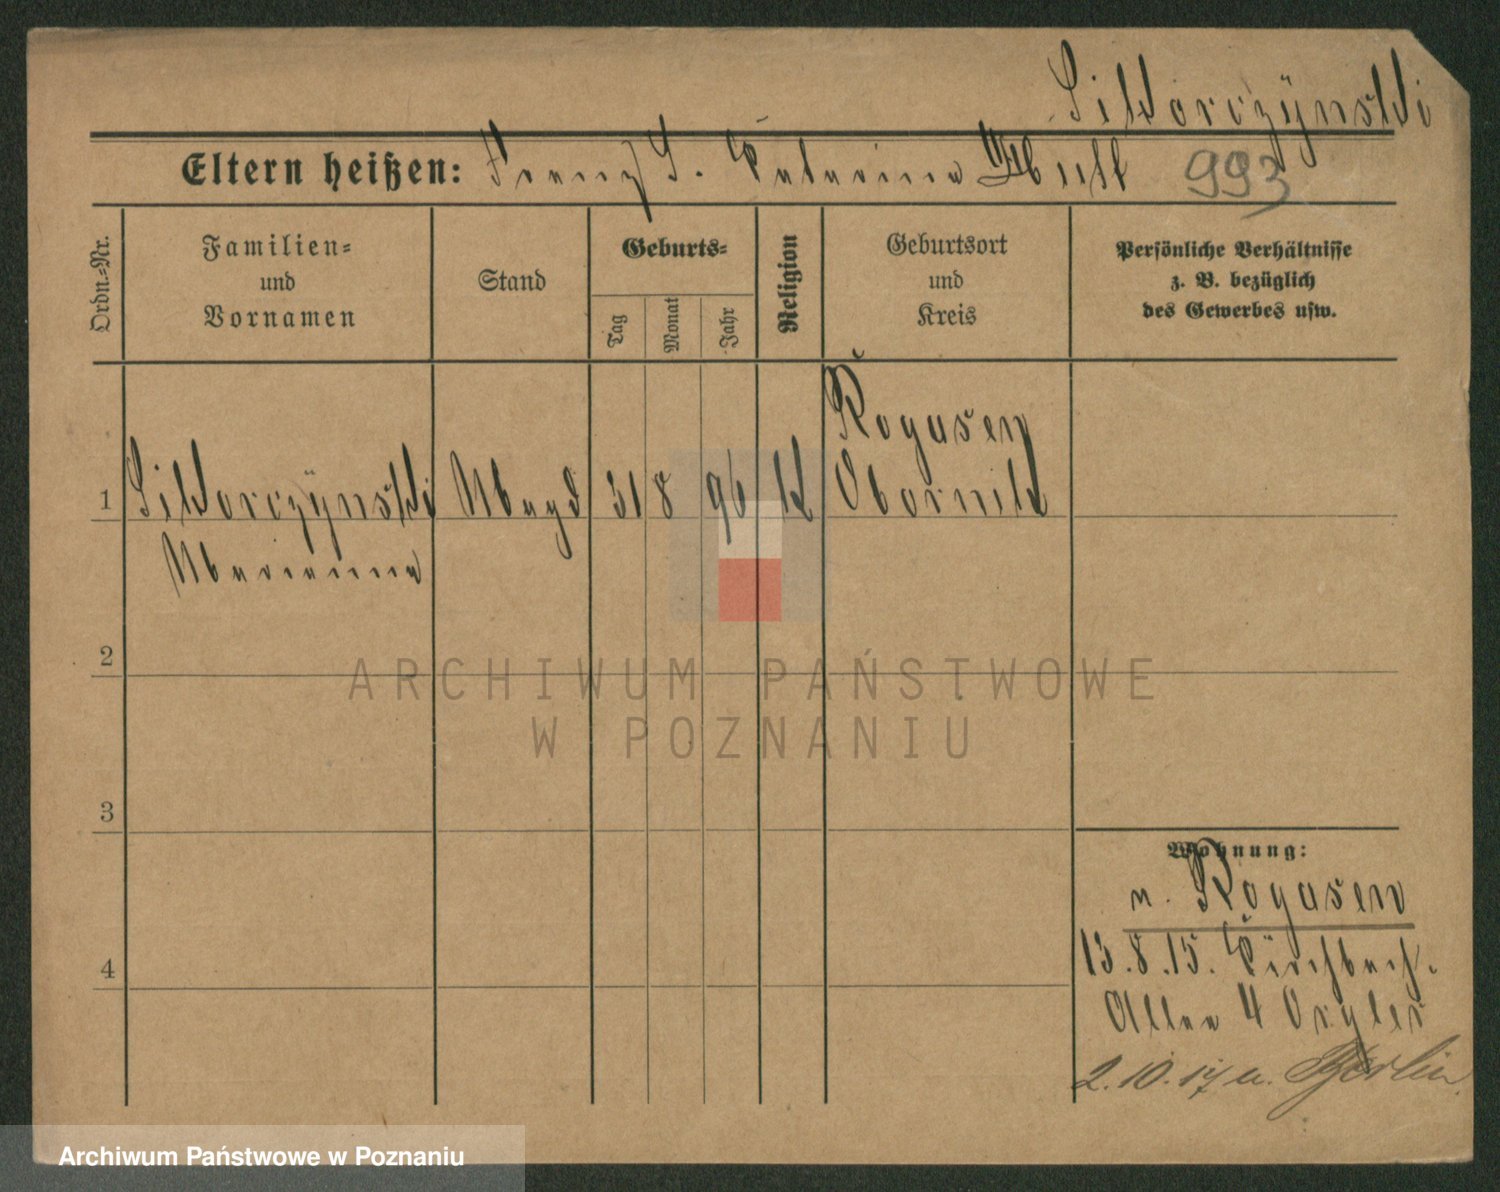 Sikorczÿnski
Eltern heißen: Franz S. Katarina 993
Ordn.-Nr.
Familien-
und
Vornamen
Stand
Geburts-
Tag
Monat
Jahr
Religion
Geburtsort
und
Kreis
Persönliche Verhältnisse
z. B. bezüglich
des Gewerbes usw.
Rogasen
1 Sikorczÿnski Magd 31 8 96 k Obornik
Marianna
2
ARCHIWUM PAŃSTWOWE
W POZNANIU
3
Wohnung:
n. Rogasen
13.8.15. Kirchbach.
4
Allee 4 Orgler
2.10.17 n. Berlin
Archiwum Państwowe w Poznaniu